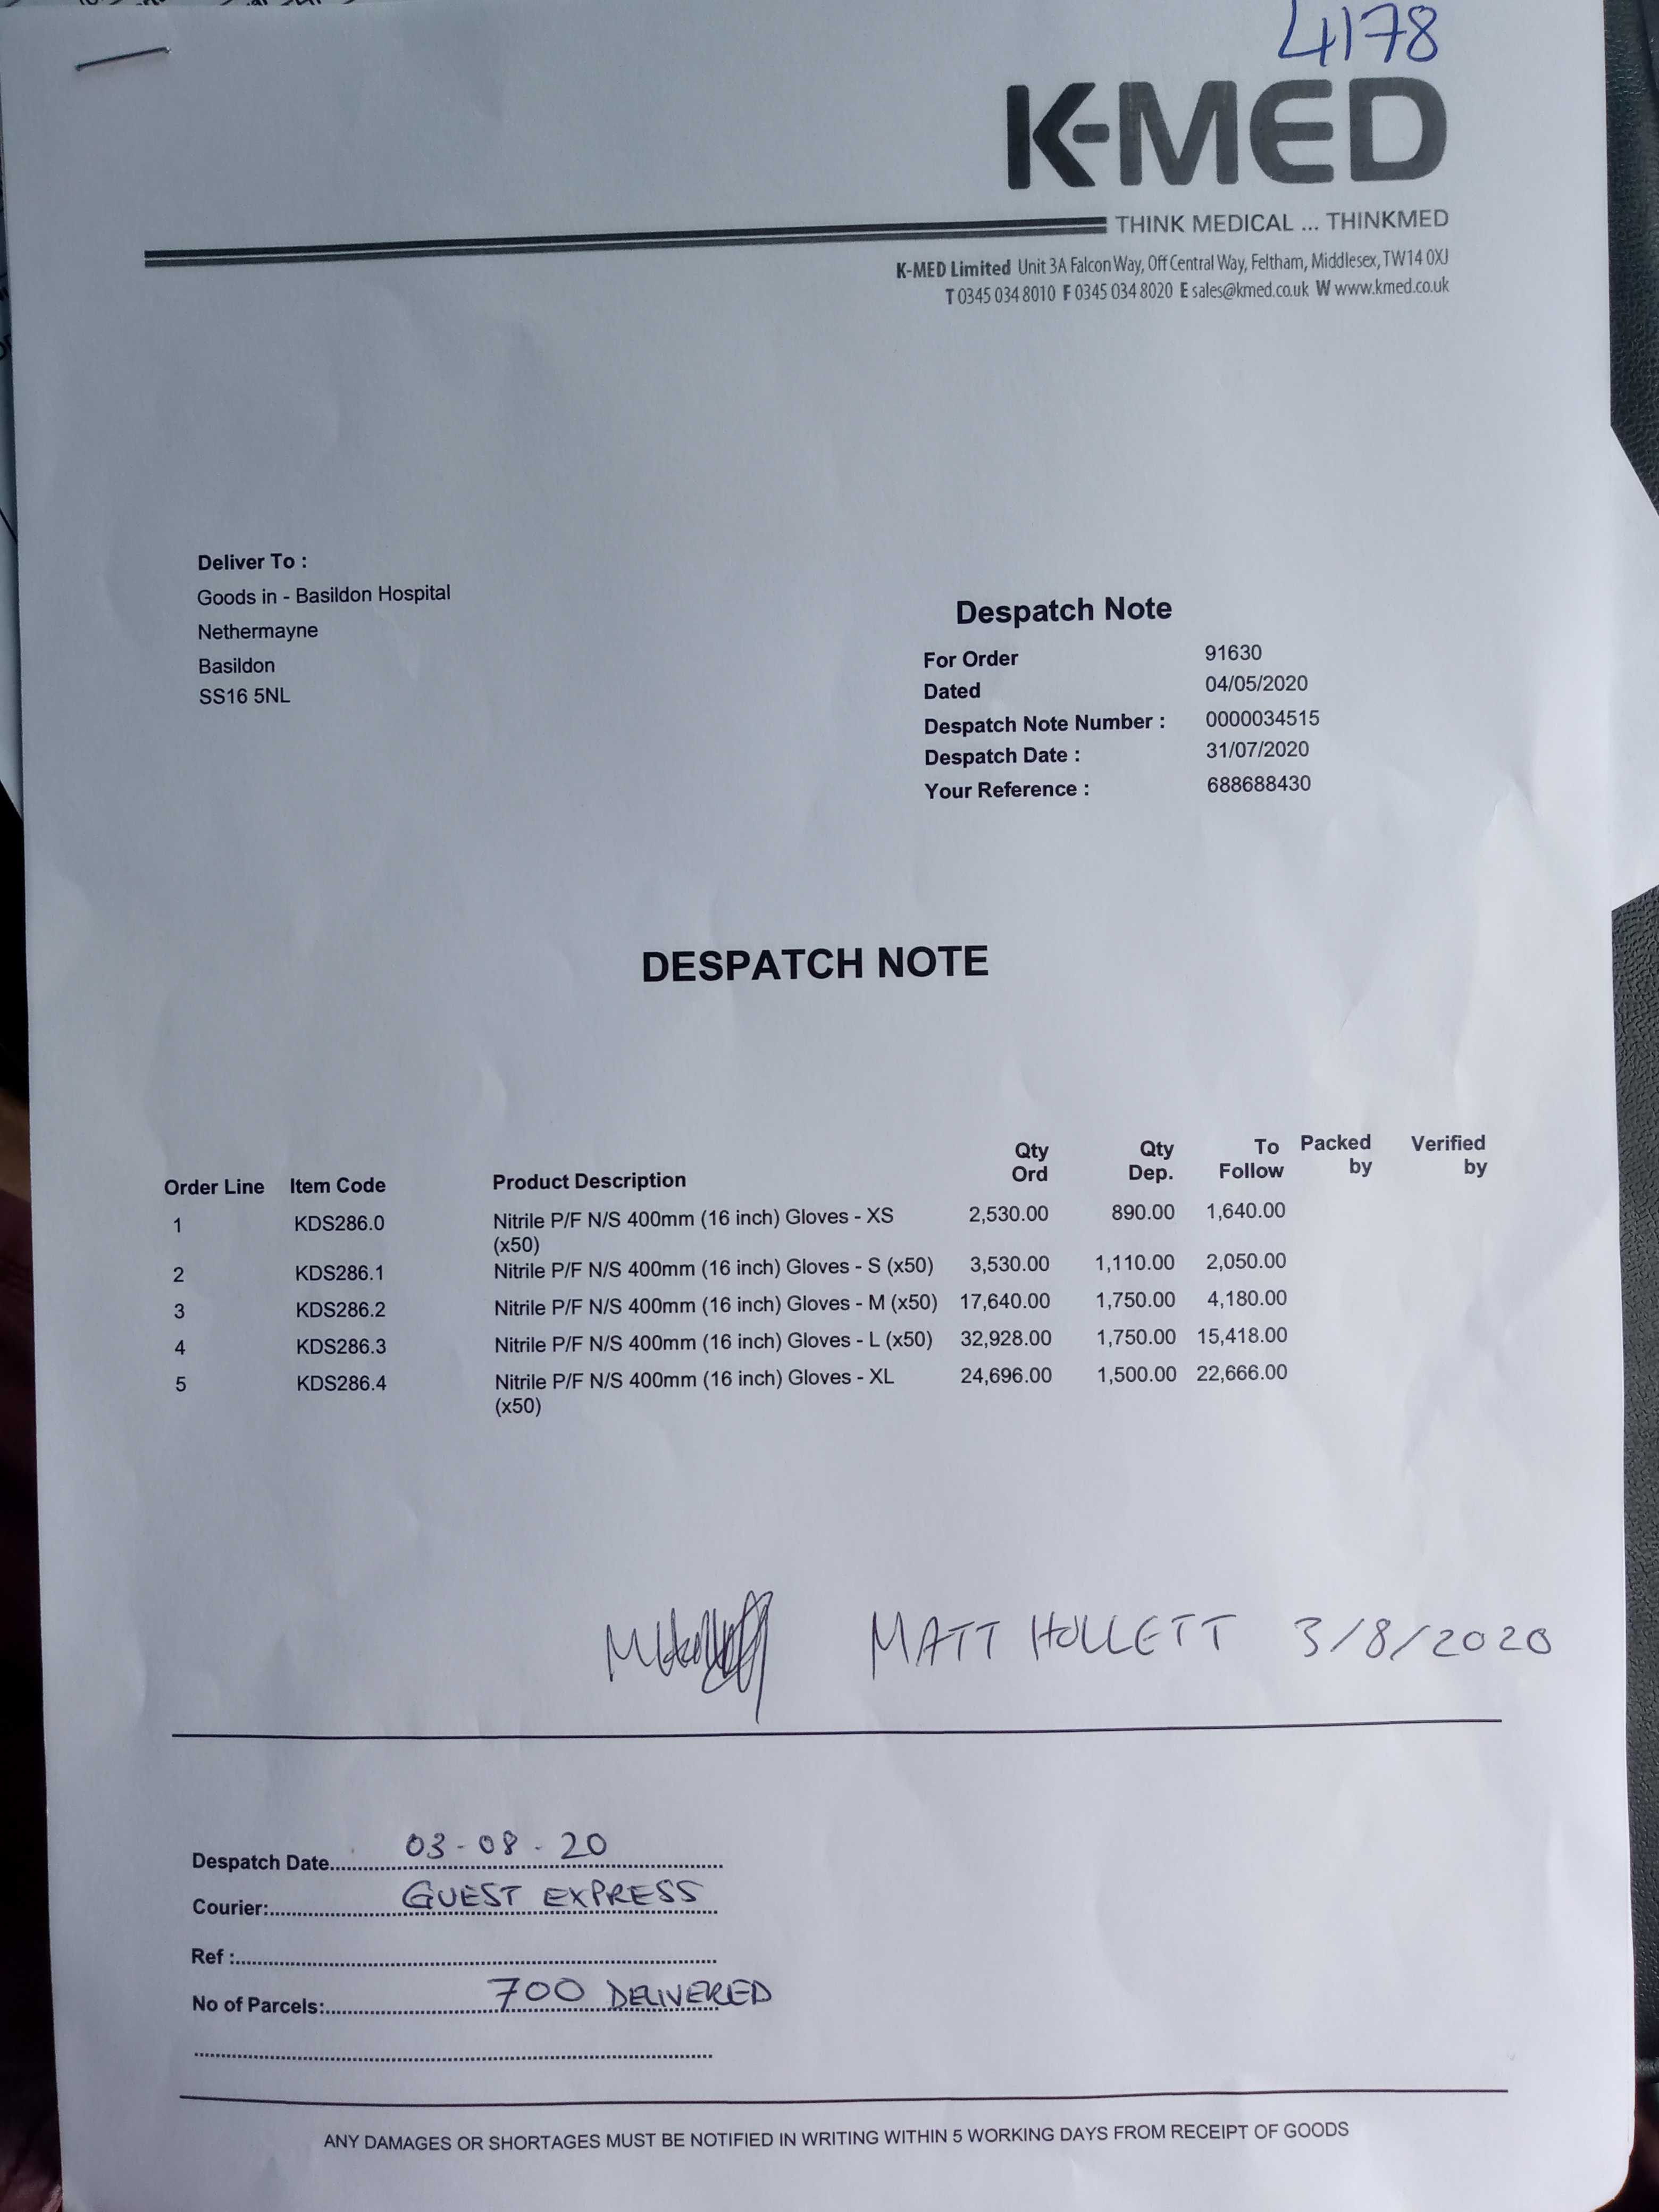 4178
K-MED
THINK MEDICAL ... THINKMED
K-MED Limited Unit 3A Falcon Way, Off Central Way, Feltham, Middlesex, TW14 0XJ
T 0345 034 8010 F 0345 034 8020 E sales@kmed.co.uk W www.kmed.co.uk
Deliver To :
Goods in - Basildon Hospital
Nethermayne
Basildon
SS16 5NL
Despatch Note
For Order 91630
Dated 04/05/2020
Despatch Note Number : 0000034515
Despatch Date : 31/07/2020
Your Reference : 688688430
DESPATCH NOTE
Order Line Item Code Product Description Qty Ord Qty Dep. To Follow Packed by Verified by
1 KDS286.0 Nitrile P/F N/S 400mm (16 inch) Gloves - XS 2,530.00 890.00 1,640.00
(x50)
2 KDS286.1 Nitrile P/F N/S 400mm (16 inch) Gloves - S (x50) 3,530.00 1,110.00 2,050.00
3 KDS286.2 Nitrile P/F N/S 400mm (16 inch) Gloves - M (x50) 17,640.00 1,750.00 4,180.00
4 KDS286.3 Nitrile P/F N/S 400mm (16 inch) Gloves - L (x50) 32,928.00 1,750.00 15,418.00
5 KDS286.4 Nitrile P/F N/S 400mm (16 inch) Gloves - XL 24,696.00 1,500.00 22,666.00
(x50)
MATT HOLLETT 3/8/2020
Despatch Date 03-08-20
Courier: GUEST EXPRESS
Ref :
No of Parcels: 700 DELIVERED
ANY DAMAGES OR SHORTAGES MUST BE NOTIFIED IN WRITING WITHIN 5 WORKING DAYS FROM RECEIPT OF GOODS